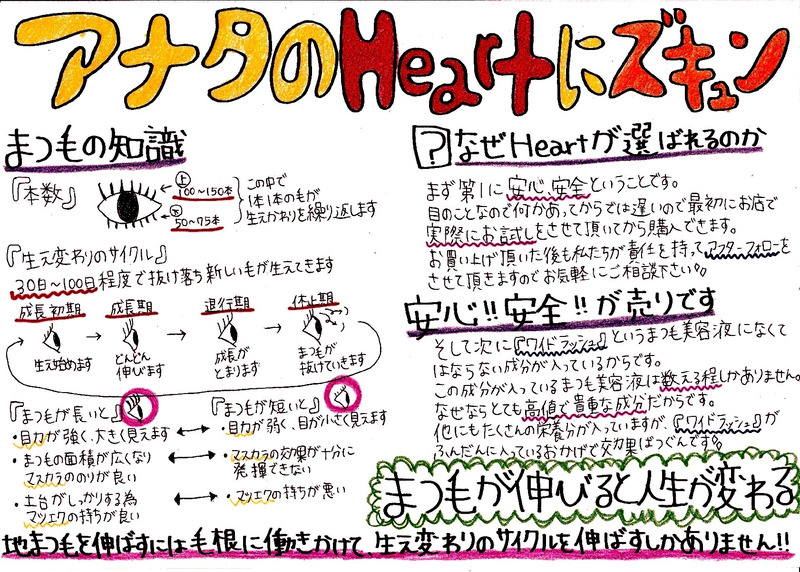 アナタのHeartにズキュン
まつもの知識
『本数』
上
100~150本
下
50~75本
この中で
1本1本のもが
生えかわりを繰り返します
『生え変わりのサイクル』
30日~100日程度で抜け落ち新しいもが生えてきます
成長初期 → 成長期 → 退行期 → 休止期
生え始めます
どんどん
伸びます
成長が
とまります
まつもが
抜けていきます
『まつもが長いと』
・目力が強く、大きく見えます
・まつもの面積が広くなり
マスカラののりが良い
・土台がしっかりする為
マツエクの持ちが良い
『まつもが短いと』
・目力が弱く、目が小さく見えます
・マスカラの効果が十分に
発揮できない
・マツエクの持ちが悪い
? なぜHeartが選ばれるのか
まず第1に安心、安全ということです。
目のことなので何かあってからでは遅いので最初にお店で
実際にお試しをさせて頂いてから購入できます。
お買い上げ頂いた後も私たちが責任を持ってアフターフォローを
させて頂きますのでお気軽にご相談下さい。
安心!!安全!!が売りです
そして次に『ワイドラッシュ』というまつも美容液になくて
はならない成分が入っているからです。
この成分が入っているまつも美容液は数える程しかありません。
なぜならとても高値で貴重な成分だからです。
他にもたくさんの栄養分が入っていますが、『ワイドラッシュ』が
ふんだんに入っているおかげで効果ばつぐんです。
まつもが伸びると人生が変わる
地まつもを伸ばすには毛根に働きかけて、生え変わりのサイクルを伸ばすしかありません!!